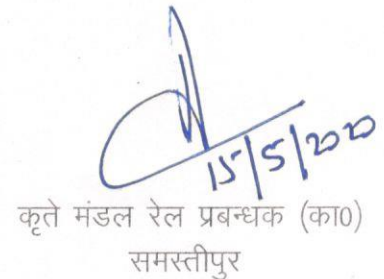 15/5/2020
कृते मंडल रेल प्रबन्धक (का0)
समस्तीपुर